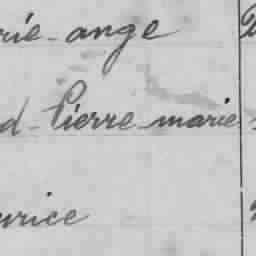 rie-ange
d-Pierre-marie
urice